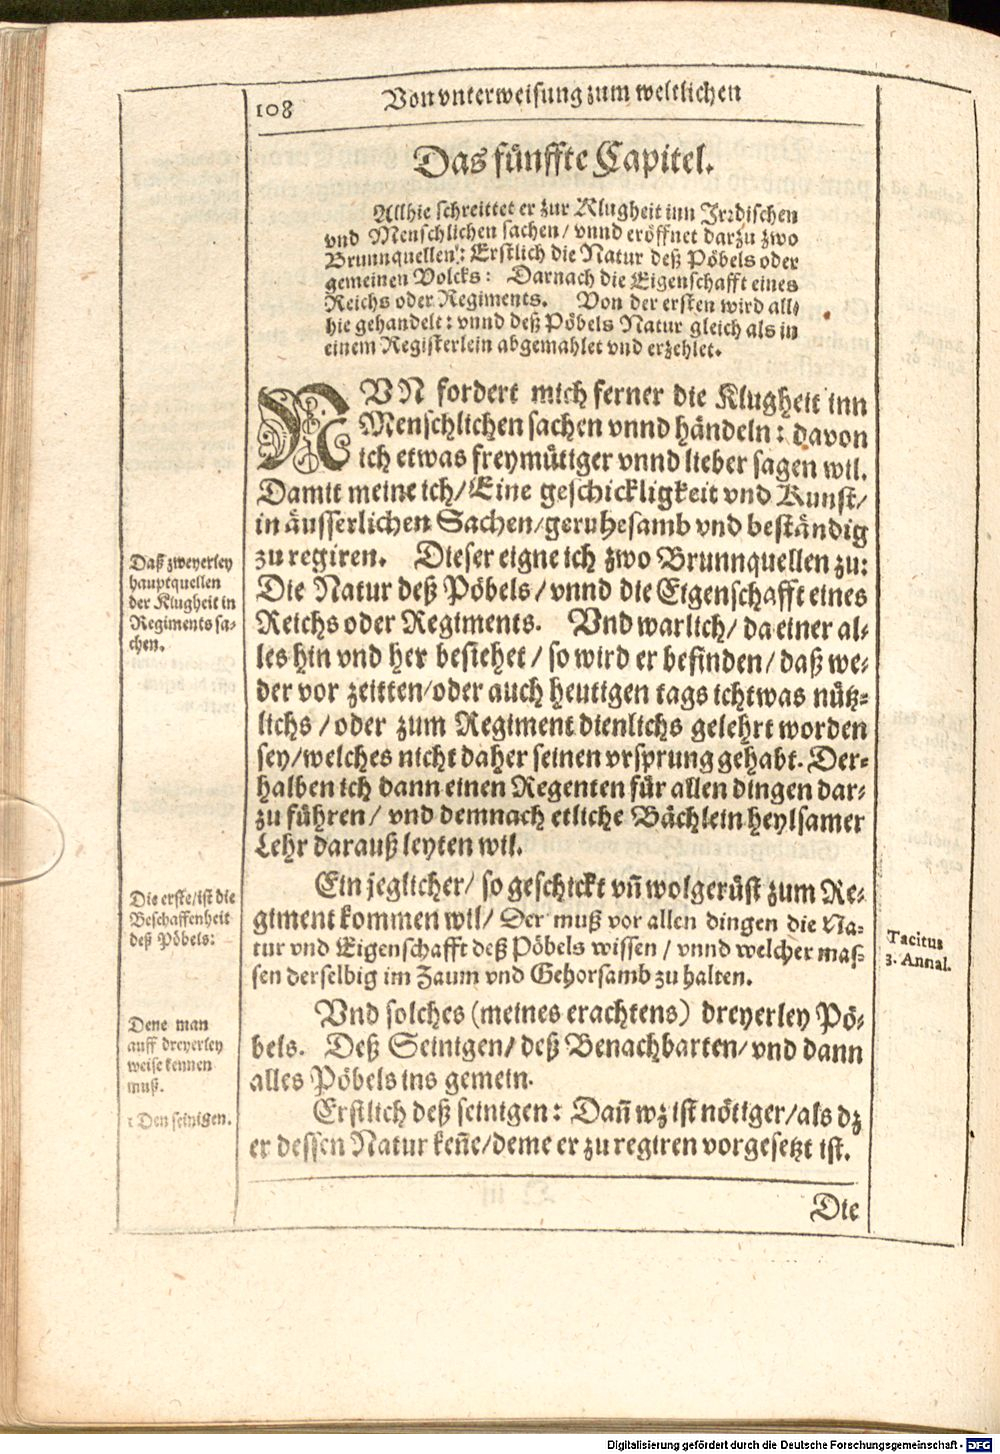 108
Von vnterweisung zum weltlichen
Das fünffte Capitel.
Allhie schreittet er zur Klugheit inn Jrrdischen
vnd Menschlichen sachen / vnnd eröffnet darzu zwo
Brunnquellen: Erstlich die Natur deß Pöbels oder
gemeinen Volcks: Darnach die Eigenschafft eines
Reichs oder Regiments. Von der ersten wird all-
hie gehandelt: vnnd deß Pöbels Natur gleich als in
einem Registerlein abgemahlet vnd erzehlet.
NVN fordert mich ferner die Klugheit inn
Menschlichen sachen vnnd händeln: davon
ich etwas freymütiger vnnd lieber sagen wil.
Damit meine ich / Eine geschickligkeit vnd Kunst /
in äusserlichen Sachen / geruhesamb vnd beständig
zu regiren. Dieser eigne ich zwo Brunnquellen zu:
Die Natur deß Pöbels / vnnd die Eigenschafft eines
Reichs oder Regiments. Vnd warlich / da einer al-
les hin vnd her besiehet / so wird er befinden / daß we-
der vor zeitten / oder auch heutigen tags ichtwas nütz-
lichs / oder zum Regiment dienlichs gelehrt worden
sey / welches nicht daher seinen vrsprung gehabt. Der-
halben ich dann einen Regenten für allen dingen dar-
zu führen / vnd demnach etliche Bächlein heylsamer
Lehr darauß leyten wil.
Ein jeglicher / so geschickt vñ wolgerüst zum Re-
giment kommen wil / Der muß vor allen dingen die Na-
tur vnd Eigenschafft deß Pöbels wissen / vnnd welcher mas-
sen derselbig im Zaum vnd Gehorsamb zu halten.
Vnd solches (meines erachtens) dreyerley Pö-
bels. Deß Seinigen / deß Benachbarten / vnd dann
alles Pöbels ins gemein.
Erstlich deß seinigen: Dañ wz ist nötiger / als dz
er dessen Natur keñe / deme er zu regiren vorgesetzt ist.
Die
Daß zweyerley
hauptquellen
der Klugheit in
Regiments sa-
chen.
Die erste / ist die
Beschaffenheit
deß Pöbels:
Dene man
auff dreyerley
weise kennen
muß.
1 Den seinigen.
Tacitus
3. Annal.
Digitalisierung gefördert durch die Deutsche Forschungsgemeinschaft - DFG